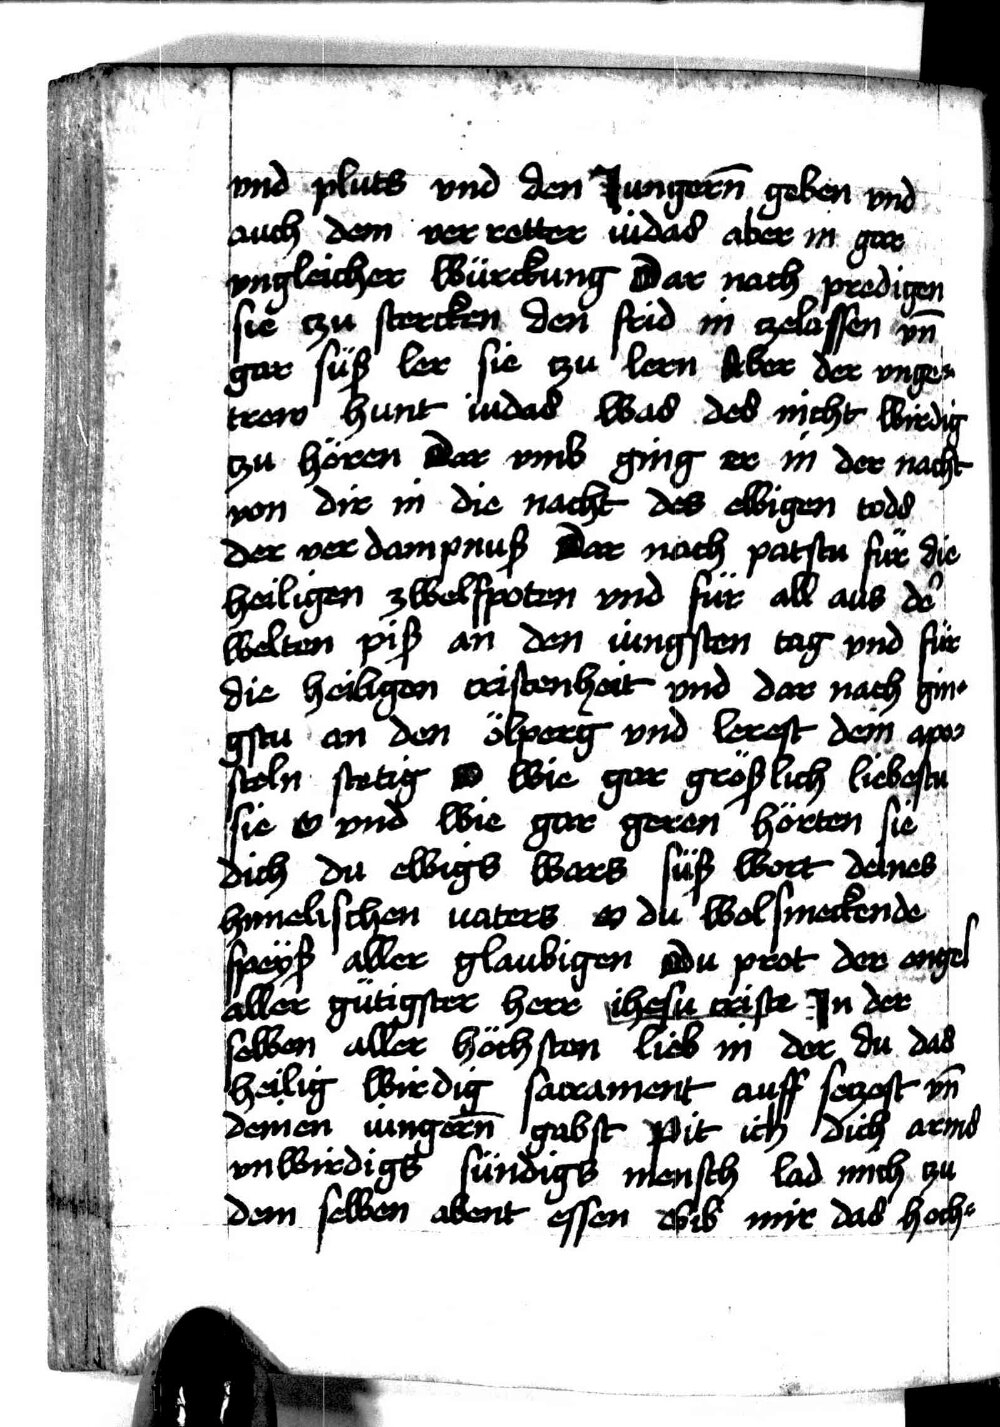 vnd pluts vnd den Jungern̄ geben vnd
auch dem verretter iudas aber in gar
vngleicher würckung Dar nach predigen
sie tzu stercken den frid in tzelassen vn̄
gar süß ler sie tzu lern Aber der vnge=
trew hunt iudas was des nicht wirdig
tzu hören Dar vmb ging er in der nacht
von dir in die nacht des ewigen tods
der verdampnuß Dar nach patstu für die
heiligen zwelfpoten vnd für all aus de᷑
welten piß an den iungsten tag vnd für
die heiligen cristenheit vnd dar nach gin=
gstu an den ölperg vnd lerest dein apo=
steln stetig O wie gar größlich liebestu
sie O vnd wie gar geren hörten sie
dich du ewigs wars süß wort deines
himelischen vaters O du wolsmeckende
speyß aller glaubigen Du prot der engel
aller gütigster herr ihesu criste In der
selben aller höchsten lieb in der du das
heilig wirdig sacrament auff setzest vn̄
deinen iungern̄ gabst Pit ich dich arms
vnwirdigs sündigs mensch lad mich tzu
dem selben abent essen Gib mir das hoch=